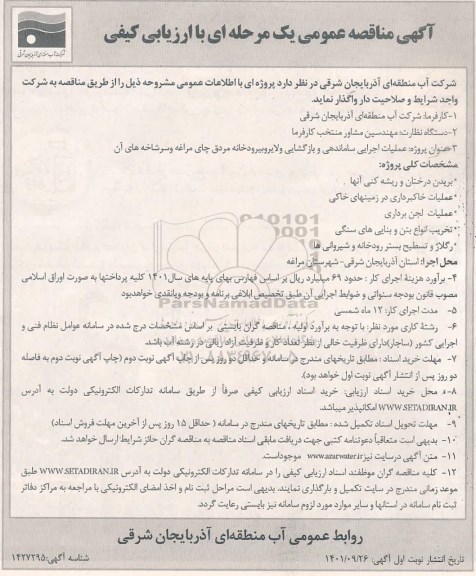 آگهی مناقصه عمومی یک مرحله ای با ارزیابی کیفی
شرکت آب منطقه‌ای آذربایجان شرقی
شرکت آب منطقه‌ای آذربایجان شرقی در نظر دارد پروژه ای با اطلاعات عمومی مشروحه ذیل را از طریق مناقصه به شرکت
واجد شرایط و صلاحیت دار واگذار نماید.
۱-کارفرما: شرکت آب منطقه‌ای آذربایجان شرقی
۲-دستگاه نظارت: مهندسین مشاور منتخب کارفرما
۳-عنوان پروژه: عملیات اجرایی ساماندهی و بازگشایی ولایروبی‌رودخانه مردق چای مراغه وسرشاخه های آن
مشخصات کلی پروژه:
*بریدن درختان و ریشه کنی آنها
*عملیات خاکبرداری در زمینهای خاکی
*عملیات لجن برداری
*تخریب انواع بتن و بنایی های سنگی
*رگلاژ و تسطیح بستر رودخانه و شیروانی ها
محل اجرا: استان آذربایجان شرقی-شهرستان مراغه
۴- برآورد هزینه اجرای کار : حدود ۶۹ میلیارد ریال بر اساس فهارس بهای پایه های سال۱۴۰۱ کلیه پرداختها به صورت اوراق اسلامی
مصوب قانون بودجه سنواتی و ضوابط اجرایی آن طبق تخصیص ابلاغی برنامه و بودجه ویانقدی خواهدبود
۵- مدت اجرای کار: ۱۲ ماه شمسی
۶- رشتهٔ کاری مورد نظر: با توجه به برآورد اولیه ، مناقصه گران بایستی بر اساس مشخصات درج شده در سامانه عوامل نظام فنی و
اجرایی کشور (ساجار)دارای ظرفیت خالی از نظر تعداد کار و ظرفیت آزاد ریالی در رشته آب باشد.
۷- مهلت خرید اسناد : مطابق تاریخهای مندرج در سامانه و حداقل دو روز پس از چاپ آگهی نوبت دوم (چاپ آگهی نوبت دوم به فاصله
دو روز پس از انتشار آگهی نوبت اول خواهد بود).
۸-ه محل خرید اسناد ارزیابی: خرید اسناد ارزیابی کیفی صرفاً از طریق سامانه تدارکات الکترونیکی دولت به آدرس
WWW.SETADIRAN.IR امکانپذیر میباشد.
۹- مهلت تحویل اسناد تکمیل شده : مطابق تاریخهای مندرج در سامانه ( حداقل ۱۵ روز پس از آخرین مهلت فروش اسناد)
۱۰- بدیهی است متعاقباً دعوتنامه کتبی جهت دریافت مابقی اسناد مناقصه به مناقصه گران حائز شرایط ارسال خواهد شد.
۱۱- متن آگهی درسایت نیز www.azarwater.ir موجوداست.
۱۲- کلیه مناقصه گران موظفند اسناد ارزیابی کیفی را در سامانه تدارکات الکترونیکی دولت به آدرس WWW.SETADIRAN.IR طبق
موعد زمانی مندرج در سایت تکمیل و بارگذاری نمایند، بدیهی است مراحل ثبت نام و اخذ امضای الکترونیکی با مراجعه به مراکز دفاتر
ثبت نام سامانه در استانها و سایر موارد مورد لزوم سامانه نیز بایستی رعایت گردد.
روابط عمومی آب منطقه‌ای آذربایجان شرقی
تاریخ انتشار نوبت اول آگهی: ۱۴۰۱/۰۹/۲۶
شناسه آگهی:۱۴۲۷۲۹۵
ParsNamadData